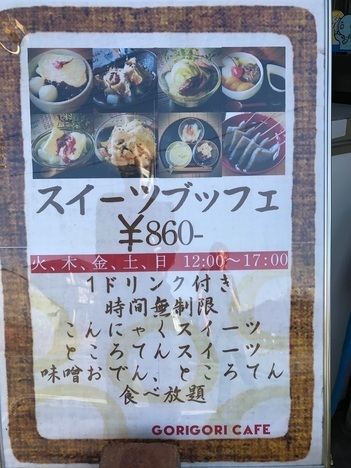 スイーツブッフェ
¥860-
火、木、金、土、日 12:00〜17:00
1ドリンク付き
時間無制限
こんにゃくスイーツ
ところてんスイーツ
味噌おでん、ところてん
食べ放題
GORIGORI CAFE